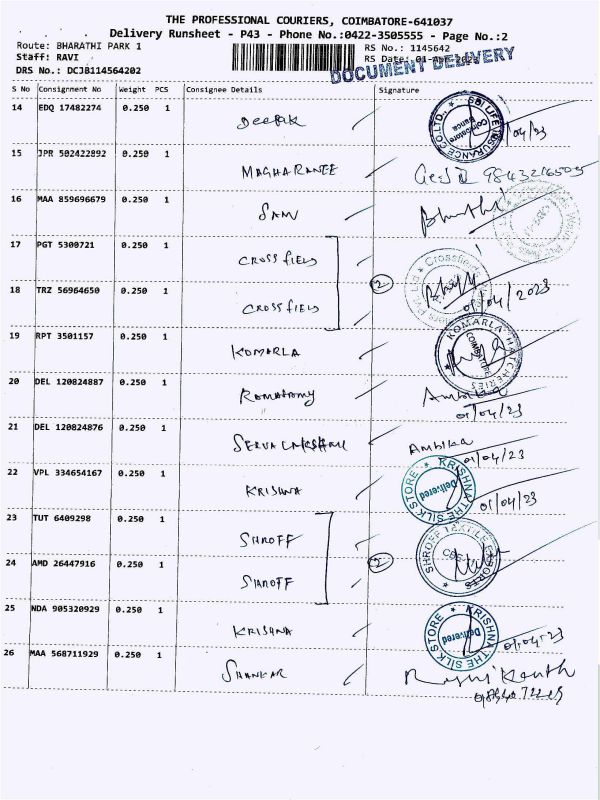 THE PROFESSIONAL COURIERS, COIMBATORE-641037
Delivery Runsheet - P43 - Phone No.:0422-3505555 - Page No.:2
Route: BHARATHI PARK 1
RS No.: 1145642
Staff: RAVI
RS Date: 01-Apr-2023
DRS No.: DCJB114564202
DOCUMENT DELIVERY
S No Consignment No Weight PCS Consignee Details Signature
14 EDQ 17482274 0.250 1 Deepak SBI LIFE INSURANCE CO.LTD. Coimbatore /04/23
15 JPR 502422892 0.250 1 MAGHARANEE
16 MAA 859696679 0.250 1 SAM
17 PGT 5300721 0.250 1 CROSS fIELD Crossfield
18 TRZ 56964650 0.250 1 CROSS fIELD 2 01/04/2023
19 RPT 3501157 0.250 1 KOMARLA KOMARLA HATCHERIES COIMBATORE
20 DEL 120824887 0.250 1 Ambika 01/04/23
21 DEL 120824876 0.250 1 Ambika 01/04/23
22 VPL 334654167 0.250 1 KRISHNA KRISHNA THE SILK STORE Delivered 01/04/23
23 TUT 6409298 0.250 1 SHROFF SHROFF TEXTILE
24 AMD 26447916 0.250 1 SHROFF 2
25 NDA 905320929 0.250 1 KRISHNA KRISHNA THE SILK STORE Delivered 01/04/23
26 MAA 568711929 0.250 1 SHANKAR